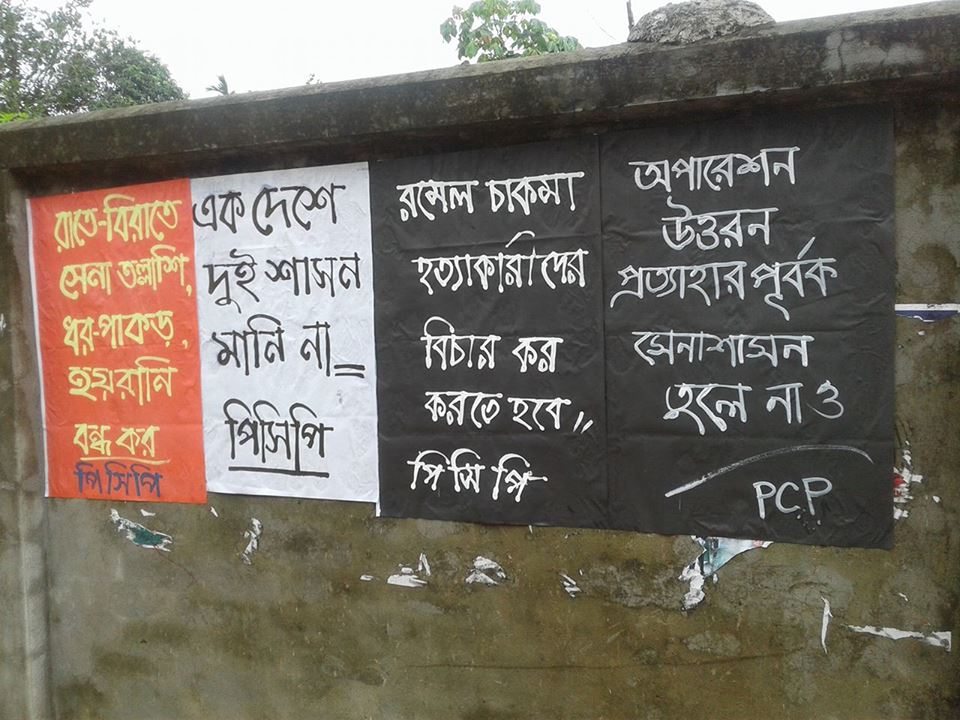 রাতে-বিরাতে
সেনা তল্লাশি,
ধর-পাকড়,
হয়রানি
বন্ধ কর
পিসিপি
এক দেশে
দুই শাসন
মানি না
পিসিপি
রমেল চাকমা
হত্যাকারীদের
বিচার কর
করতে হবে,,
পিসিপি
অপারেশন
উত্তরন
প্রত্যাহার পূর্বক
সেনাশাসন
তুলে নাও
P.C.P.